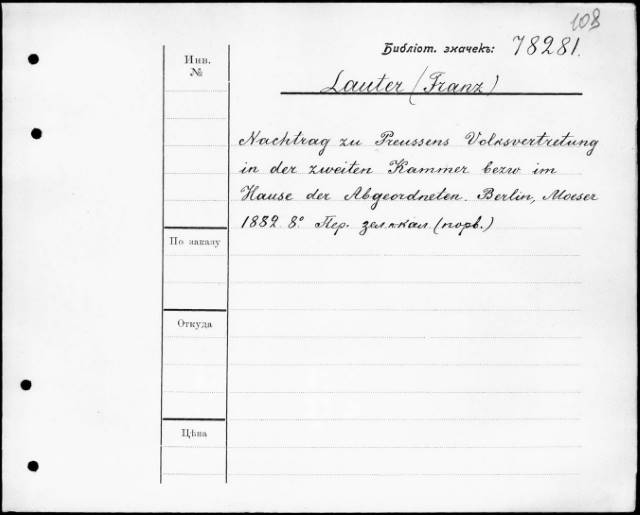 108
Библіот. значекъ: 78281.
Инв.
№
Lauter (Franz)
Nachtrag zu Preussens Volksvertretung
in der zweiten Kammer bezw im
Hause der Abgeordneten. Berlin, Moeser
1882. 8° Пер. зел. кал. (порв.)
По заказу
Откуда
Цѣна